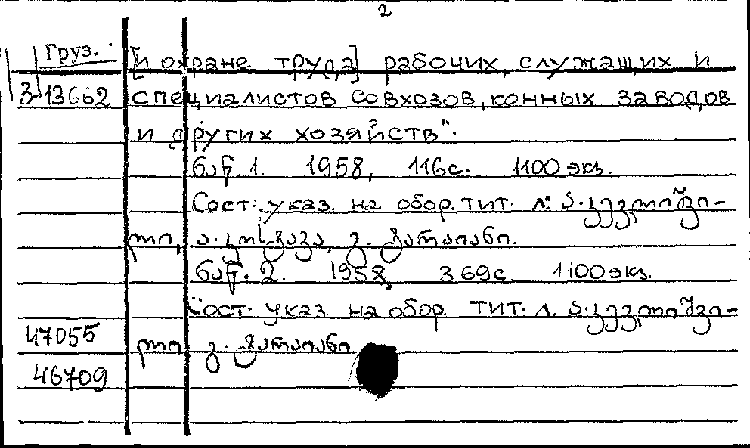 2
Груз. [и охране труда] рабочих, служащих и
3-13662 специалистов совхозов, конных заводов
и других хозяйств".
ნაწ. 1. 1958, 116с. 1100 экз.
Сост. указ. на обор. тит. л: ა. კეკელიშვი-
ლი, ა. გ.
ნაწ. 2. 1958, 369с 1100 экз.
Сост. указ на обор тит. л. ა. კეკელიშვი-
47055 ლი, გ.
46709